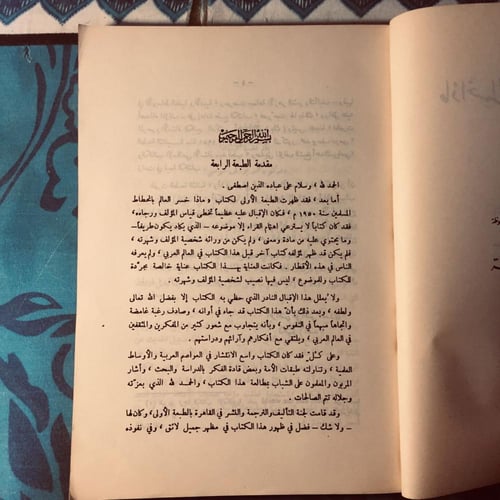 بسم الله الرحمن الرحيم
مقدمة الطبعة الرابعة
الحمد لله ، وسلام على عباده الذين اصطفى .
أما بعد ، فقد ظهرت الطبعة الأولى لكتاب « ماذا خسر العالم بانحطاط
المسلمين سنة ١٩٥٠ م ، فكان الإقبال عليه عظيماً تخطى قياس المؤلف ورجاءه،
فقد كان كتاباً لا يسترعي اهتمام القراء إلا موضوعه – الذي يكاد يكون طريفاً–
وما يحتوي عليه من مادة ومعنى ، ولم يكن من ورائه شخصية المؤلف وشهرته ،
فلم يكن قد ظهر لمؤلفه كتاب آخر قبل هذا الكتاب في العالم العربي ، ولم يعرفه
الناس في هذه الأقطار . فكانت العناية بهذا الكتاب عناية خالصة مجردة
للكتاب وللموضوع ، ليس فيها نصيب لشخصية المؤلف وشهرته .
ولا يُعلل هذا الإقبال النادر الذي حظي به الكتاب إلا بفضل الله تعالى
ولطفه ، وبعد ذلك بأن هذا الكتاب قد جاء في أوانه ، وصادف رغبة غامضة
واتجاهاً مبهماً في النفوس ، وبأنه يتجاوب مع شعور كثير من المفكرين والمثقفين
في العالم العربي ، ويلتقي مع أفكارهم وآرائهم ودراستهم .
وعلى كُلٍّ فقد كان الكتاب واسع الانتشار في العواصم العربية والأوساط
العلمية ، وتناولته طبقات الأمة وبعض قادة الفكر بالدراسة والبحث ، وأشار
المربون والمعنيون على الشباب بمطالعة هذا الكتاب ، والحمد لله الذي بعزته
وجلاله تتم الصالحات .
وقد قامت لجنة التأليف والترجمة والنشر في القاهرة بالطبعة الأولى، وكان لها
– ولا شك – فضل في ظهور هذا الكتاب في مظهر جميل لائق ، وفي نفوذه